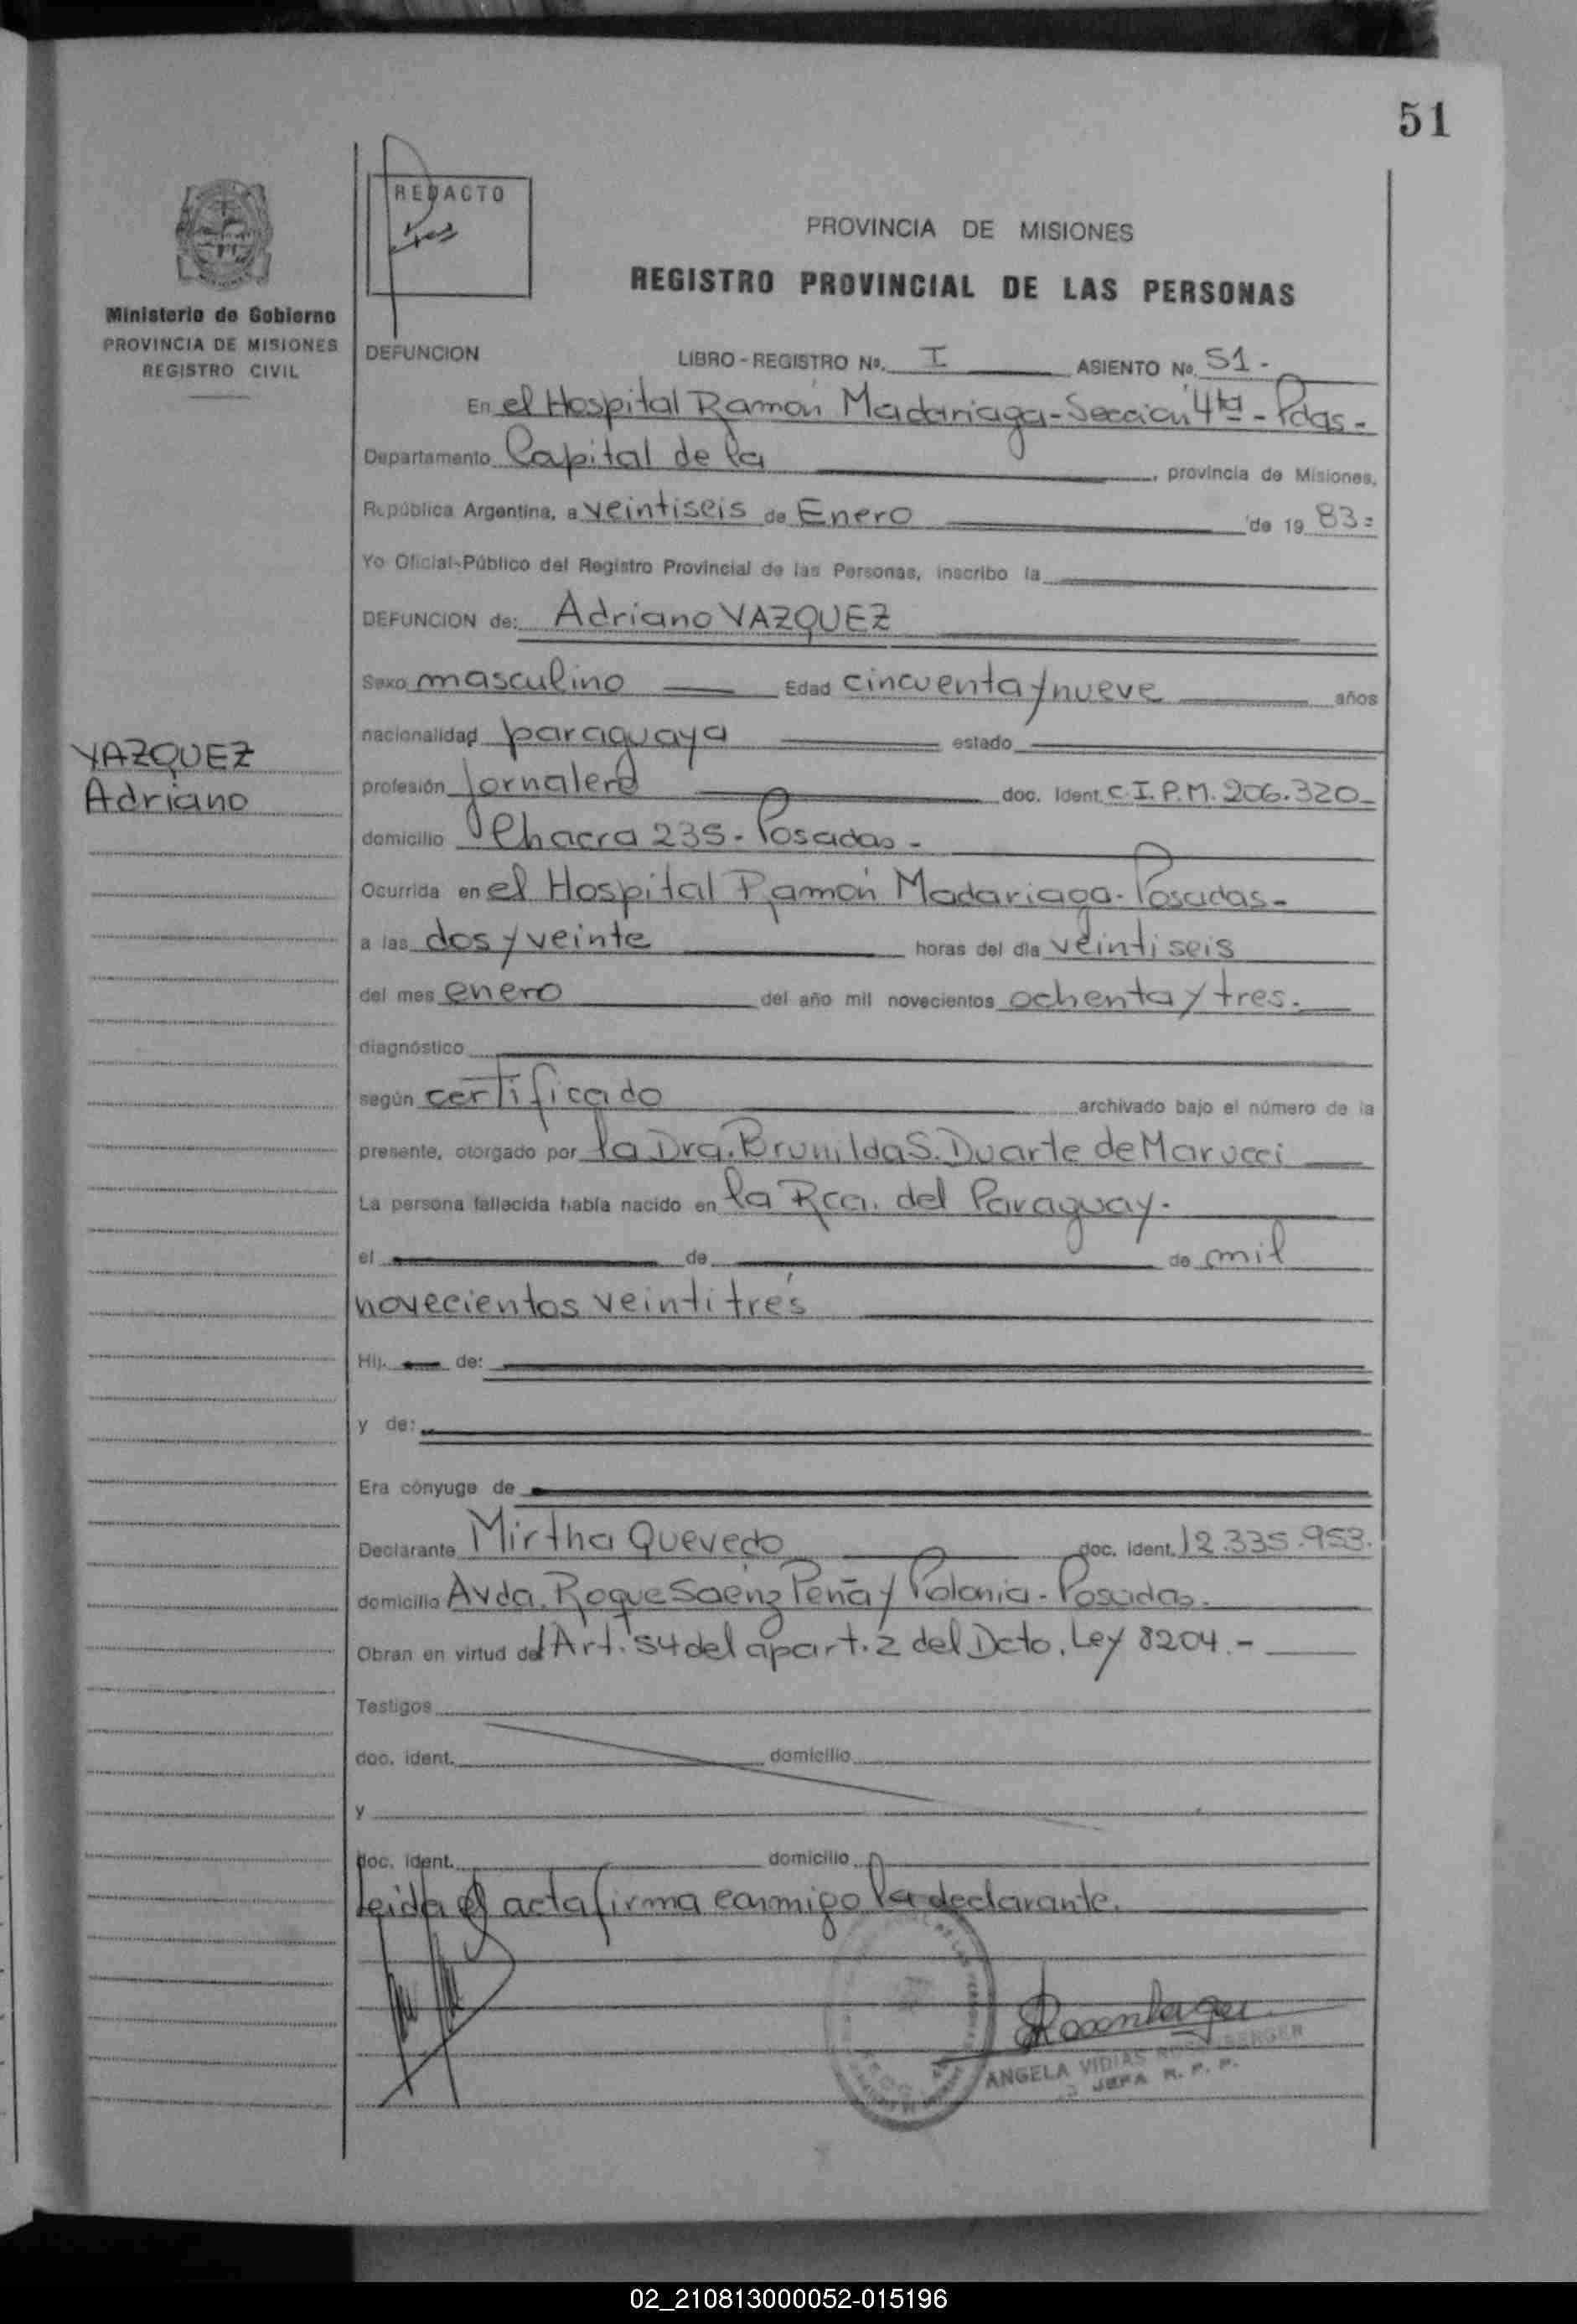 51
REDACTO
PROVINCIA DE MISIONES
REGISTRO PROVINCIAL DE LAS PERSONAS
Ministerio de Gobierno
PROVINCIA DE MISIONES
REGISTRO CIVIL
DEFUNCION LIBRO-REGISTRO No. I ASIENTO No. 51.-
En el Hospital Ramón Madariaga-Sección 4ta-Pdas-
Departamento Capital de la , provincia de Misiones,
República Argentina, a veintiseis de Enero de 19 83=
Yo Oficial-Público del Registro Provincial de las Personas, inscribo la
DEFUNCION de: Adriano VAZQUEZ
Sexo masculino Edad cincuenta y nueve años
nacionalidad paraguaya estado
VAZQUEZ
Adriano
profesión Jornalero doc. ident. C.I.P.M. 206.320-
domicilio Chacra 235-Posadas-
Ocurrida en el Hospital Ramón Madariaga-Posadas-
a las dos y veinte horas del día veintiseis
del mes enero del año mil novecientos ochenta y tres.
diagnóstico
según certificado archivado bajo el número de la
presente, otorgado por la Dra. Brunilda S. Duarte de Marucci
La persona fallecida había nacido en la Rca. del Paraguay-
el de de mil
novecientos veintitrés
Hij. de:
y de:
Era cónyuge de
Declarante Mirtha Quevedo doc. ident. 12.335.953.
domicilio Avda. Roque Saenz Peña y Polonia-Posadas.
Obran en virtud del Art. 54 del apart. 2 del Dcto. Ley 8204.-
Testigos
doc. ident. domicilio
y
doc. ident. domicilio
Leida el acta firma conmigo la declarante.
ANGELA VIDIAS ROSENBERGER
JEFA R. P. P.
02_210813000052-015196